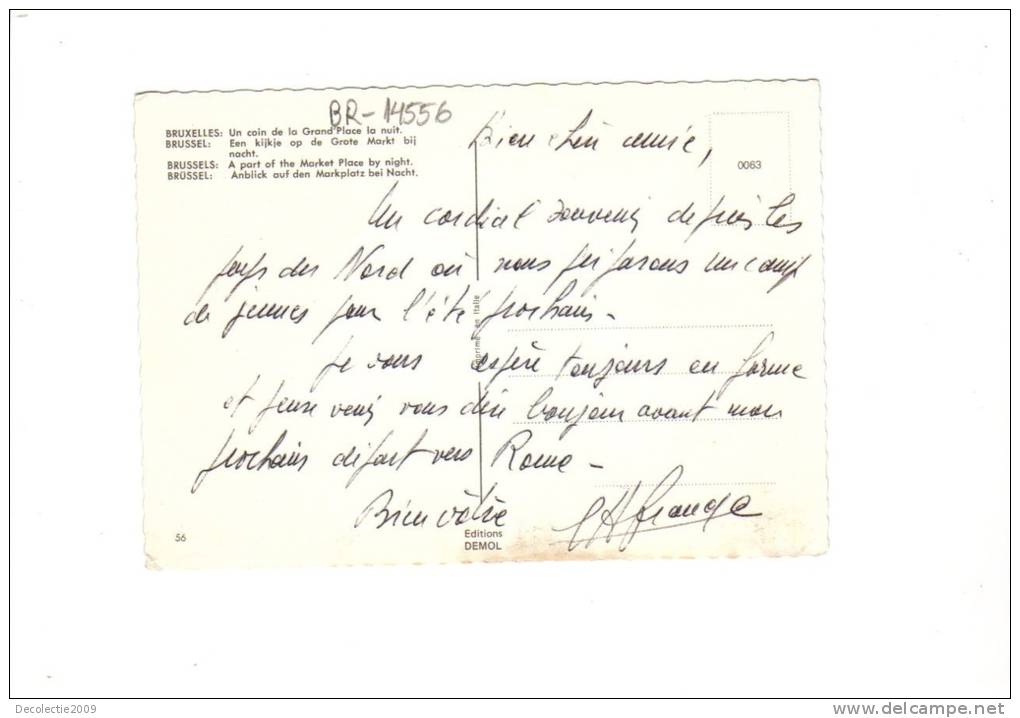 BR-14556
BRUXELLES: Un coin de la Grand'Place la nuit.
BRUSSEL: Een kijkje op de Grote Markt bij
nacht.
BRUSSELS: A part of the Market Place by night.
BRÜSSEL: Anblick auf den Markplatz bei Nacht.
0063
Bien chère amie,
Un cordial souvenir depuis les
pays du Nord où nous préparons un camp
de jeunes pour l'été prochain -
Je vous espère toujours en forme
et pense venir vous dire bonjour avant mon
prochain départ vers Rome -
Bien vôtre
Imprimé en Italie
56
Editions
DEMOL
Decolectie2009
www.delcampe.net